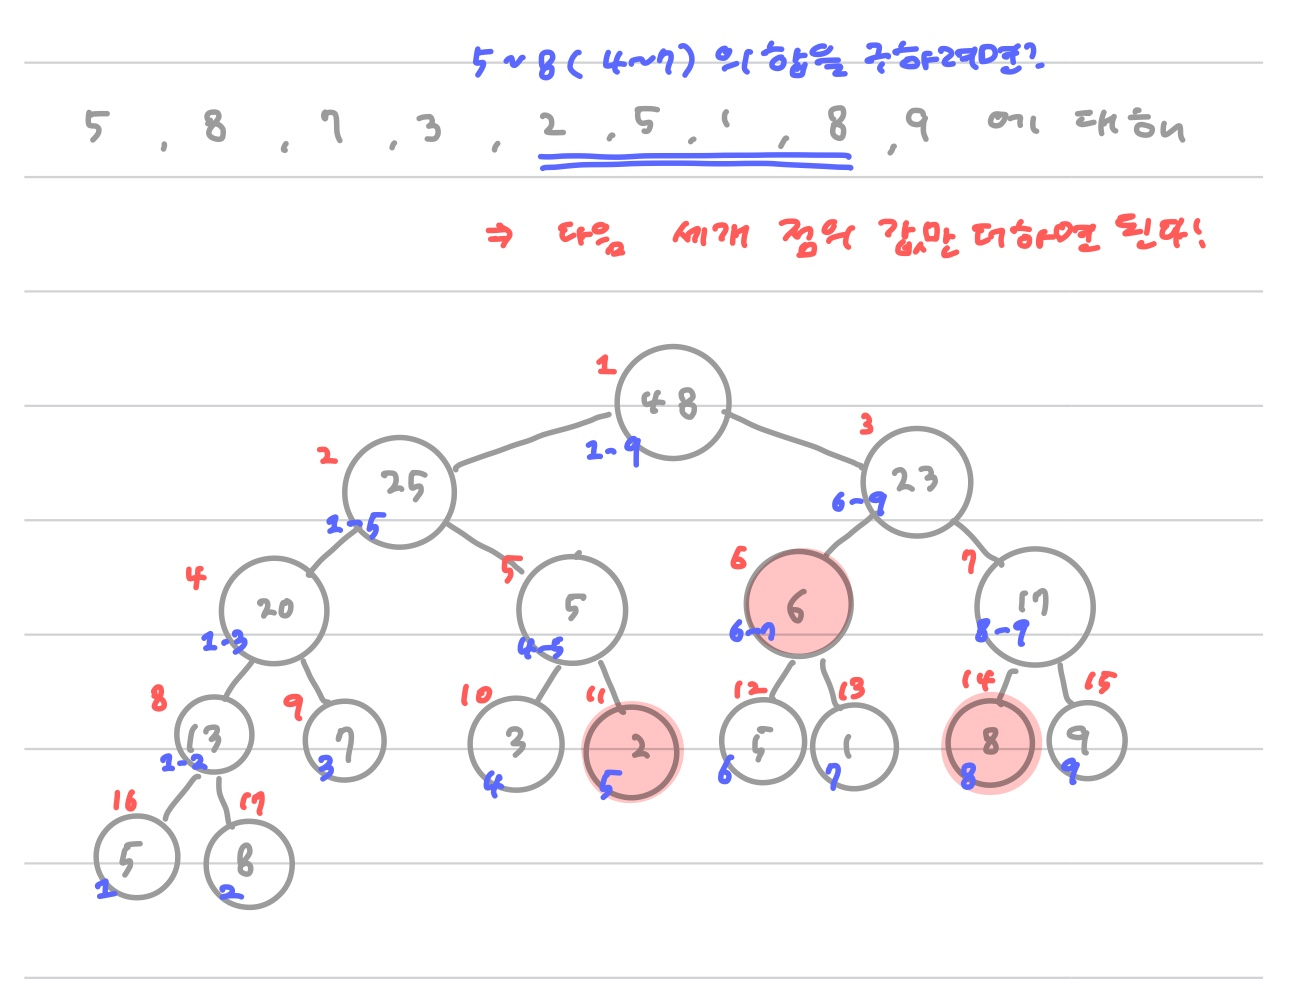 5~8(4~7)의 합을 구하려면?
5, 8, 7, 3, 2, 5, 1, 8, 9 에 대해
⇒ 다음 세개 점의 값만 더하면 된다!
1
48
1-9
2
25
1-5
3
23
6-9
4
20
1-3
5
5
4-5
6
6
6-7
7
17
8-9
8
13
1-2
9
7
3
10
3
4
11
2
5
12
5
6
13
1
7
14
8
8
15
9
9
16
5
1
17
8
2